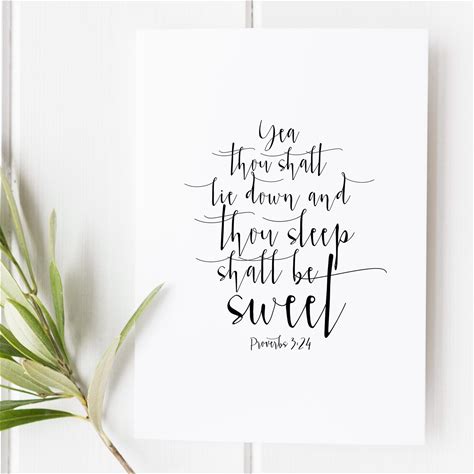 Yea
thou shalt
lie down and
thou sleep
shall be
sweet
Proverbs 3:24